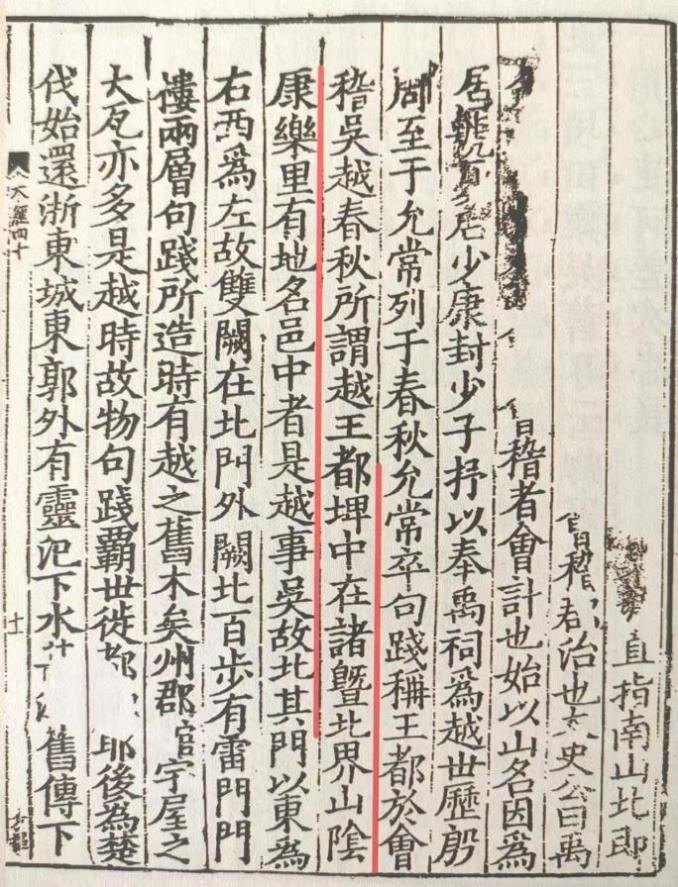 直指南山北即
稽郡治也太史公曰禹
稽者會計也始以山名因爲
居少康封少子杼以奉禹祠爲越世歷殷
周至于允常列于春秋允常卒句踐稱王都於會
稽吳越春秋所謂越王都埤中在諸暨北界山陰
康樂里有地名邑中者是越事吳故北其門以東爲
右西爲左故雙闕在北門外闕北百步有雷門門
樓兩層句踐所造時有越之舊木矣州郡官宇屋之
大瓦亦多是越時故物句踐霸世徙都耶後爲楚
伐始還浙東城東郭外有靈汜下水舊傳下
經四十